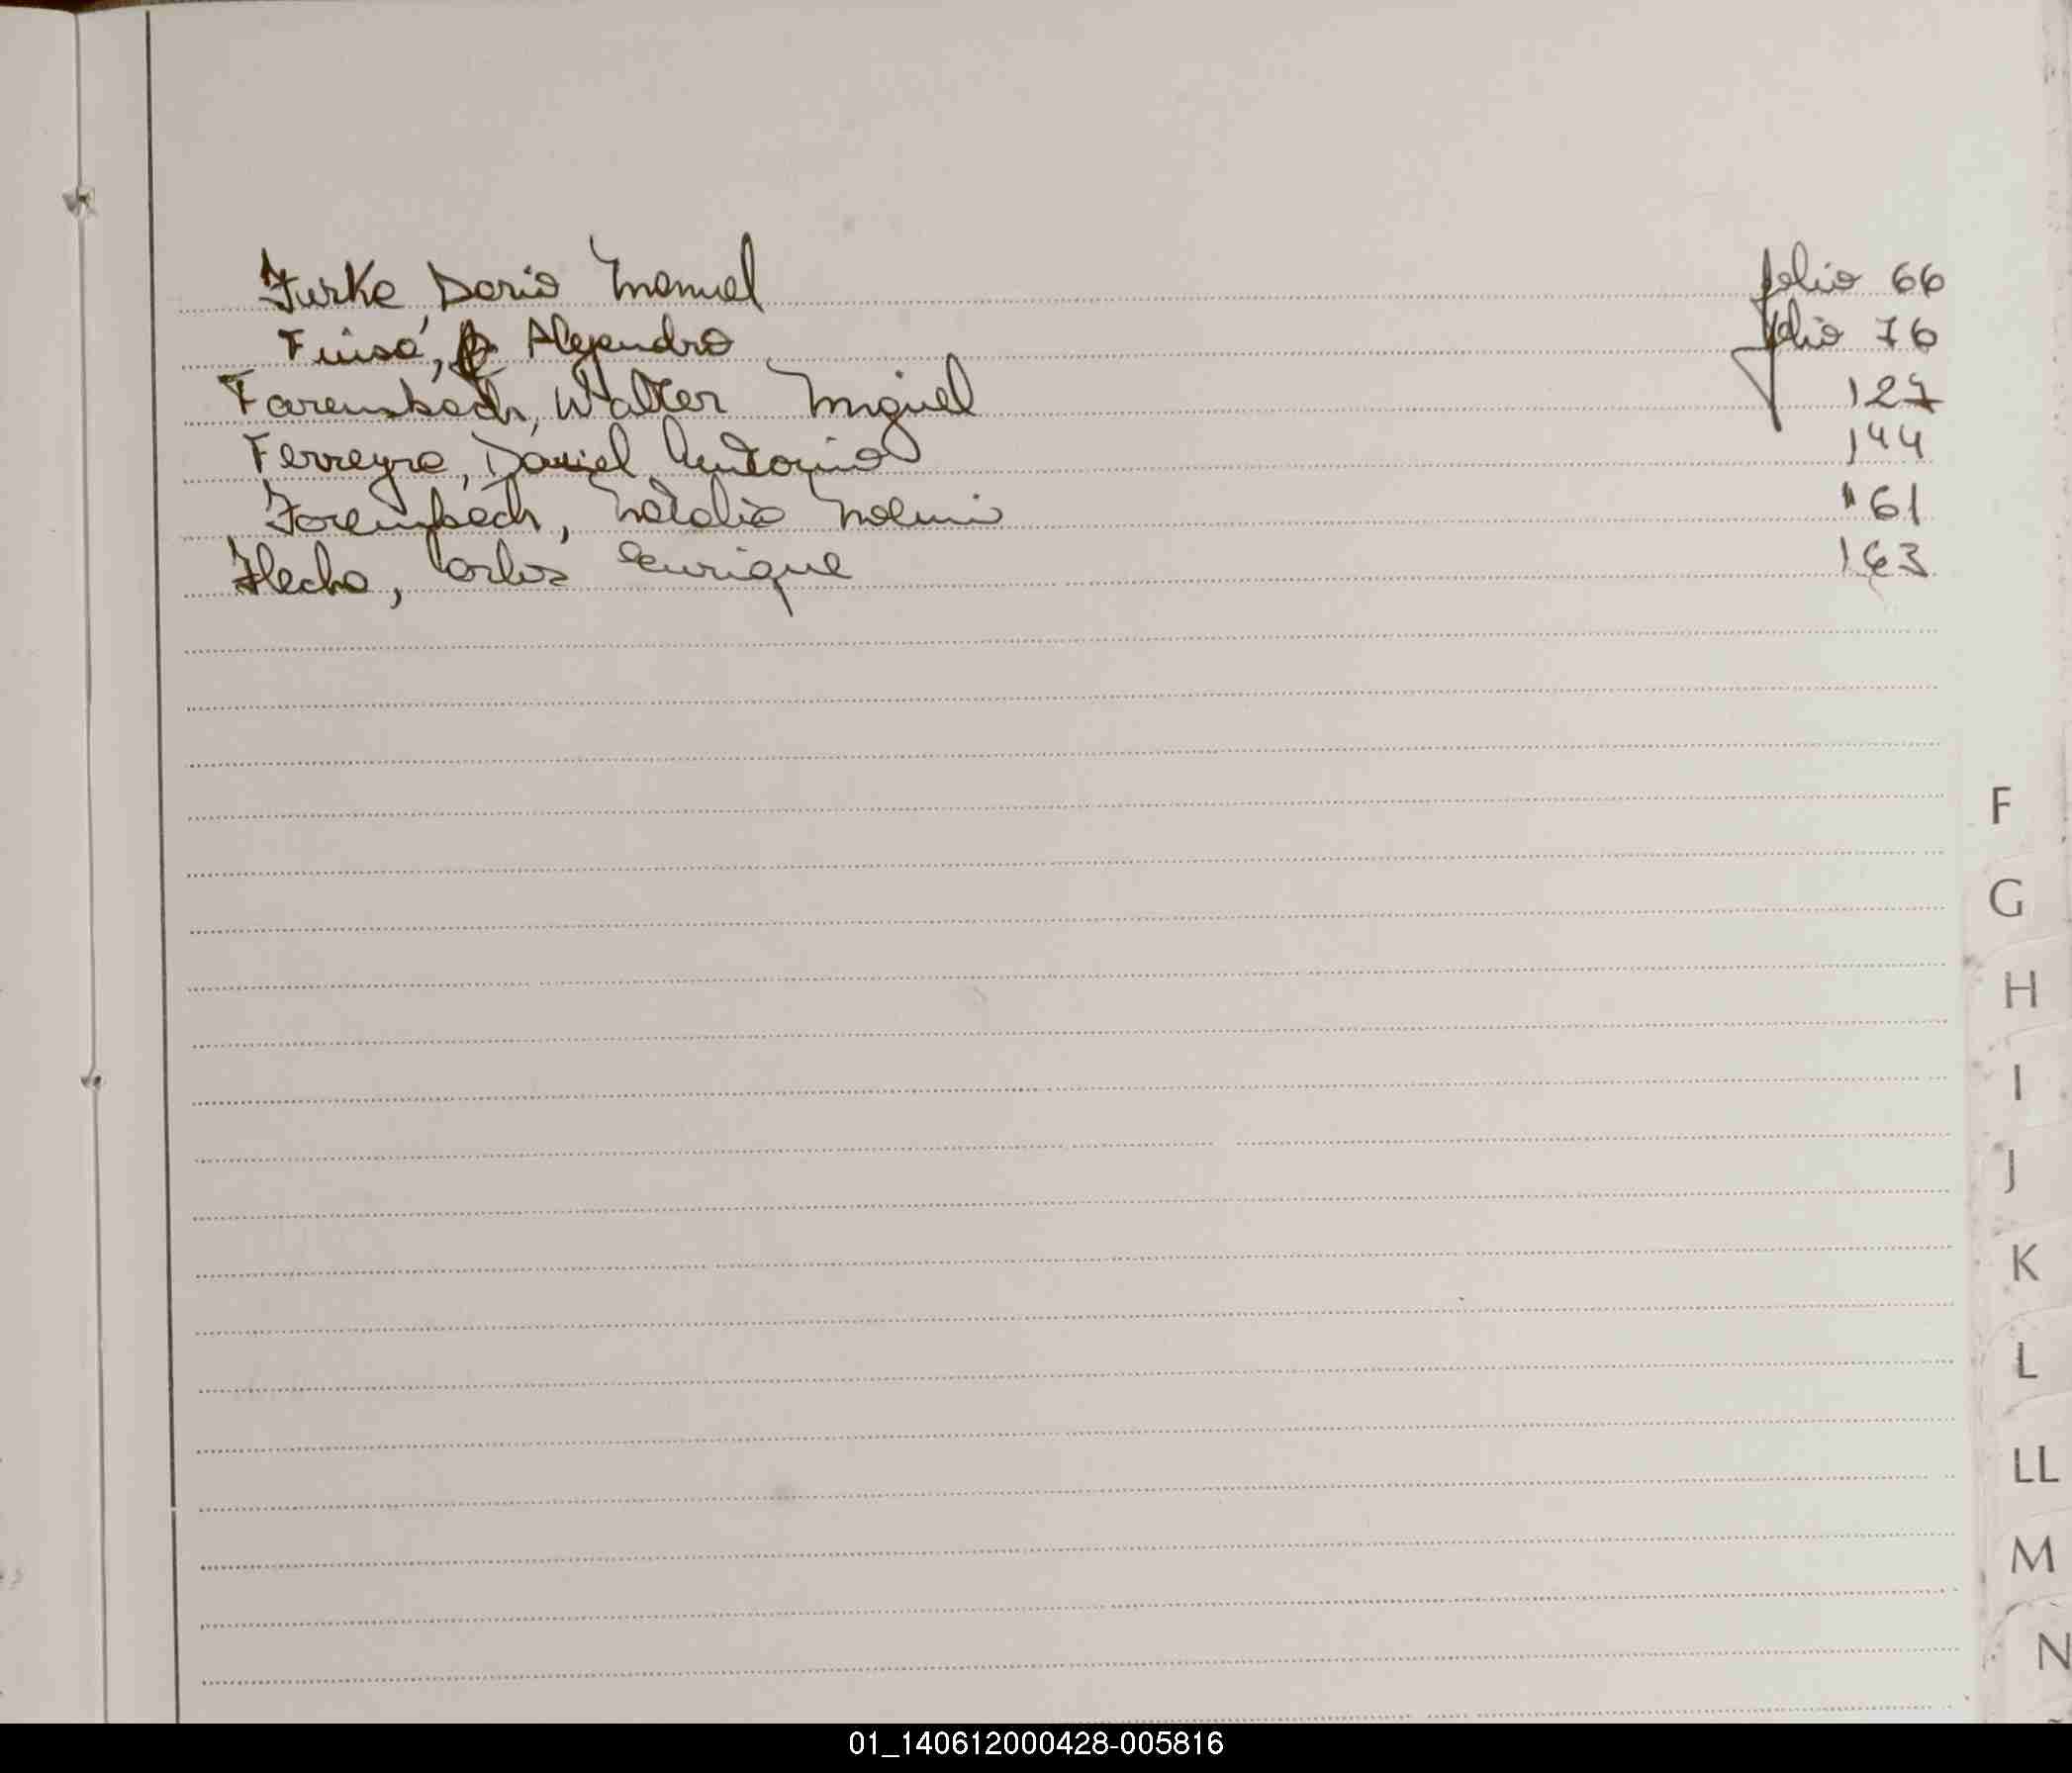 Furke, Dario Manuel folio 66
Finisá, Alejandro folio 76
Farembach, Walter Miguel 127
Ferreyra, Daniel Antonio 144
Farembach, Natalia Noemi 161
Flecha, Carlos Enrique 163
F
G
H
I
J
K
L
LL
M
N
01_140612000428-005816